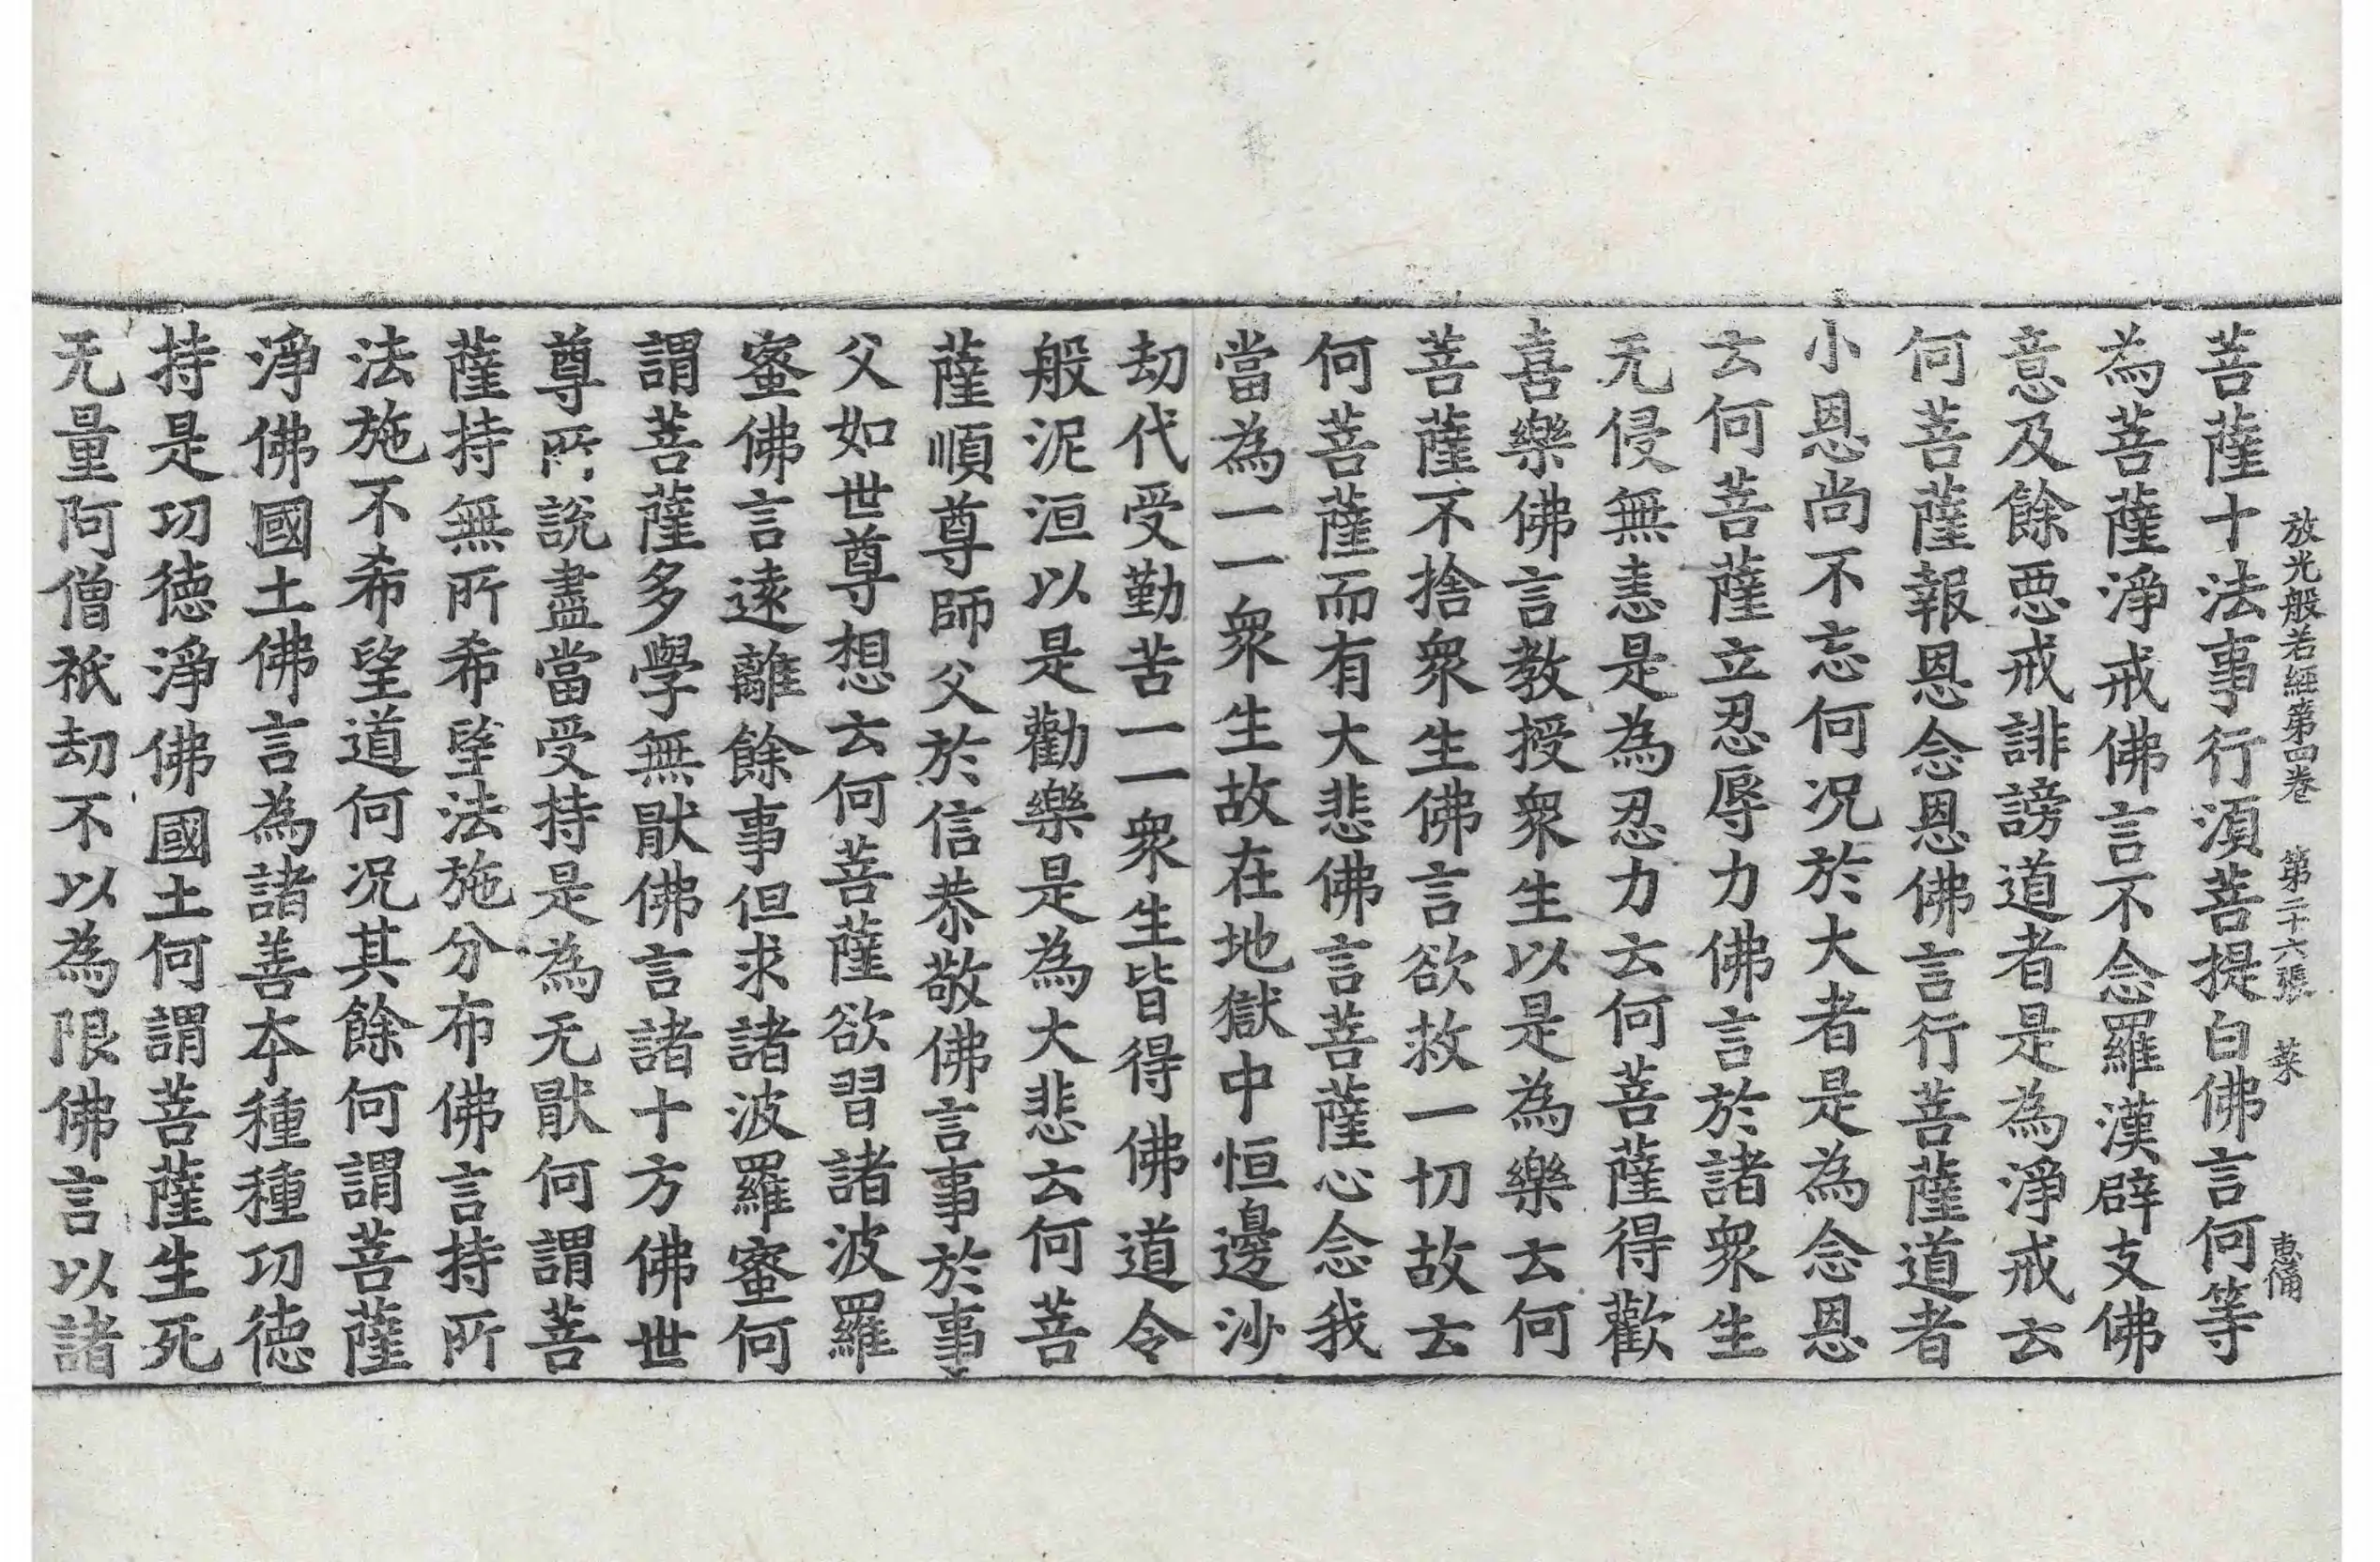 放光般若經第四卷 第二十六張 菜 惠脩
菩薩十法事行湏菩提白佛言何等
為菩薩淨戒佛言不念羅漢辟支佛
意及餘惡戒誹謗道者是為淨戒云
何菩薩報恩念恩佛言行菩薩道者
小恩尚不忘何况於大者是為念恩
云何菩薩立忍辱力佛言於諸衆生
无侵無恚是為忍力云何菩薩得歡
喜樂佛言教授衆生以是為樂云何
菩薩不捨衆生佛言欲救一切故云
何菩薩而有大悲佛言菩薩心念我
當為一一衆生故在地獄中恒邊沙
劫代受勤苦一一衆生皆得佛道令
般泥洹以是勸樂是為大悲云何菩
薩順尊師父於信恭敬佛言事於事
父如世尊想云何菩薩欲習諸波羅
蜜佛言遠離餘事但求諸波羅蜜何
謂菩薩多學無猒佛言諸十方佛世
尊所說盡當受持是為无猒何謂菩
薩持無所希望法施分布佛言持所
法施不希望道何况其餘何謂菩薩
淨佛國土佛言為諸善本種種功德
持是功德淨佛國土何謂菩薩生死
无量阿僧祇劫不以為限佛言以諸